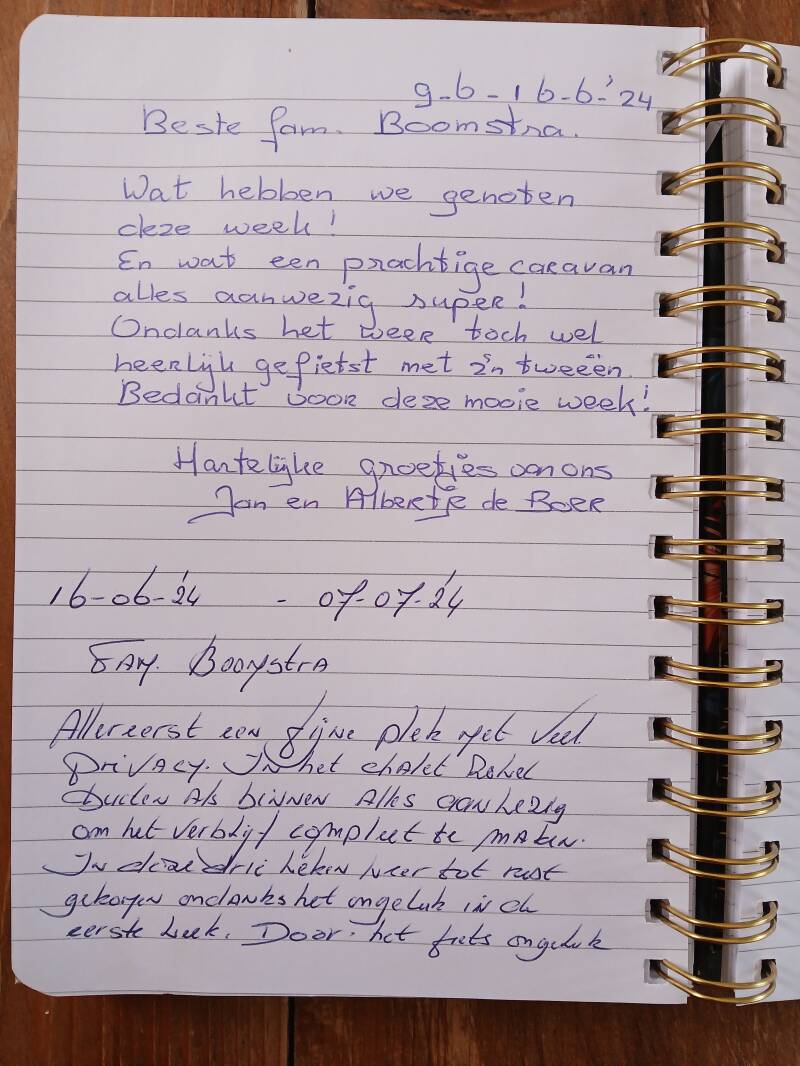 9-6-16-6-'24
Beste fam. Boomstra.
Wat hebben we genoten
deze week!
En wat een prachtige caravan
alles aanwezig super!
Ondanks het weer toch wel
heerlijk gefietst met z'n tweeën.
Bedankt voor deze mooie week!
Hartelijke groetjes van ons
Jan en Albertje de Boer
16-06-'24 - 07-07-'24
Fam. Boomstra
Allereerst een fijne plek met veel
privacy. In het chalet zowel
buiten als binnen alles aanwezig
om het verblijf compleet te maken.
In deze drie weken weer tot rust
gekomen ondanks het ongeluk in de
eerste week. Door het fiets ongeluk